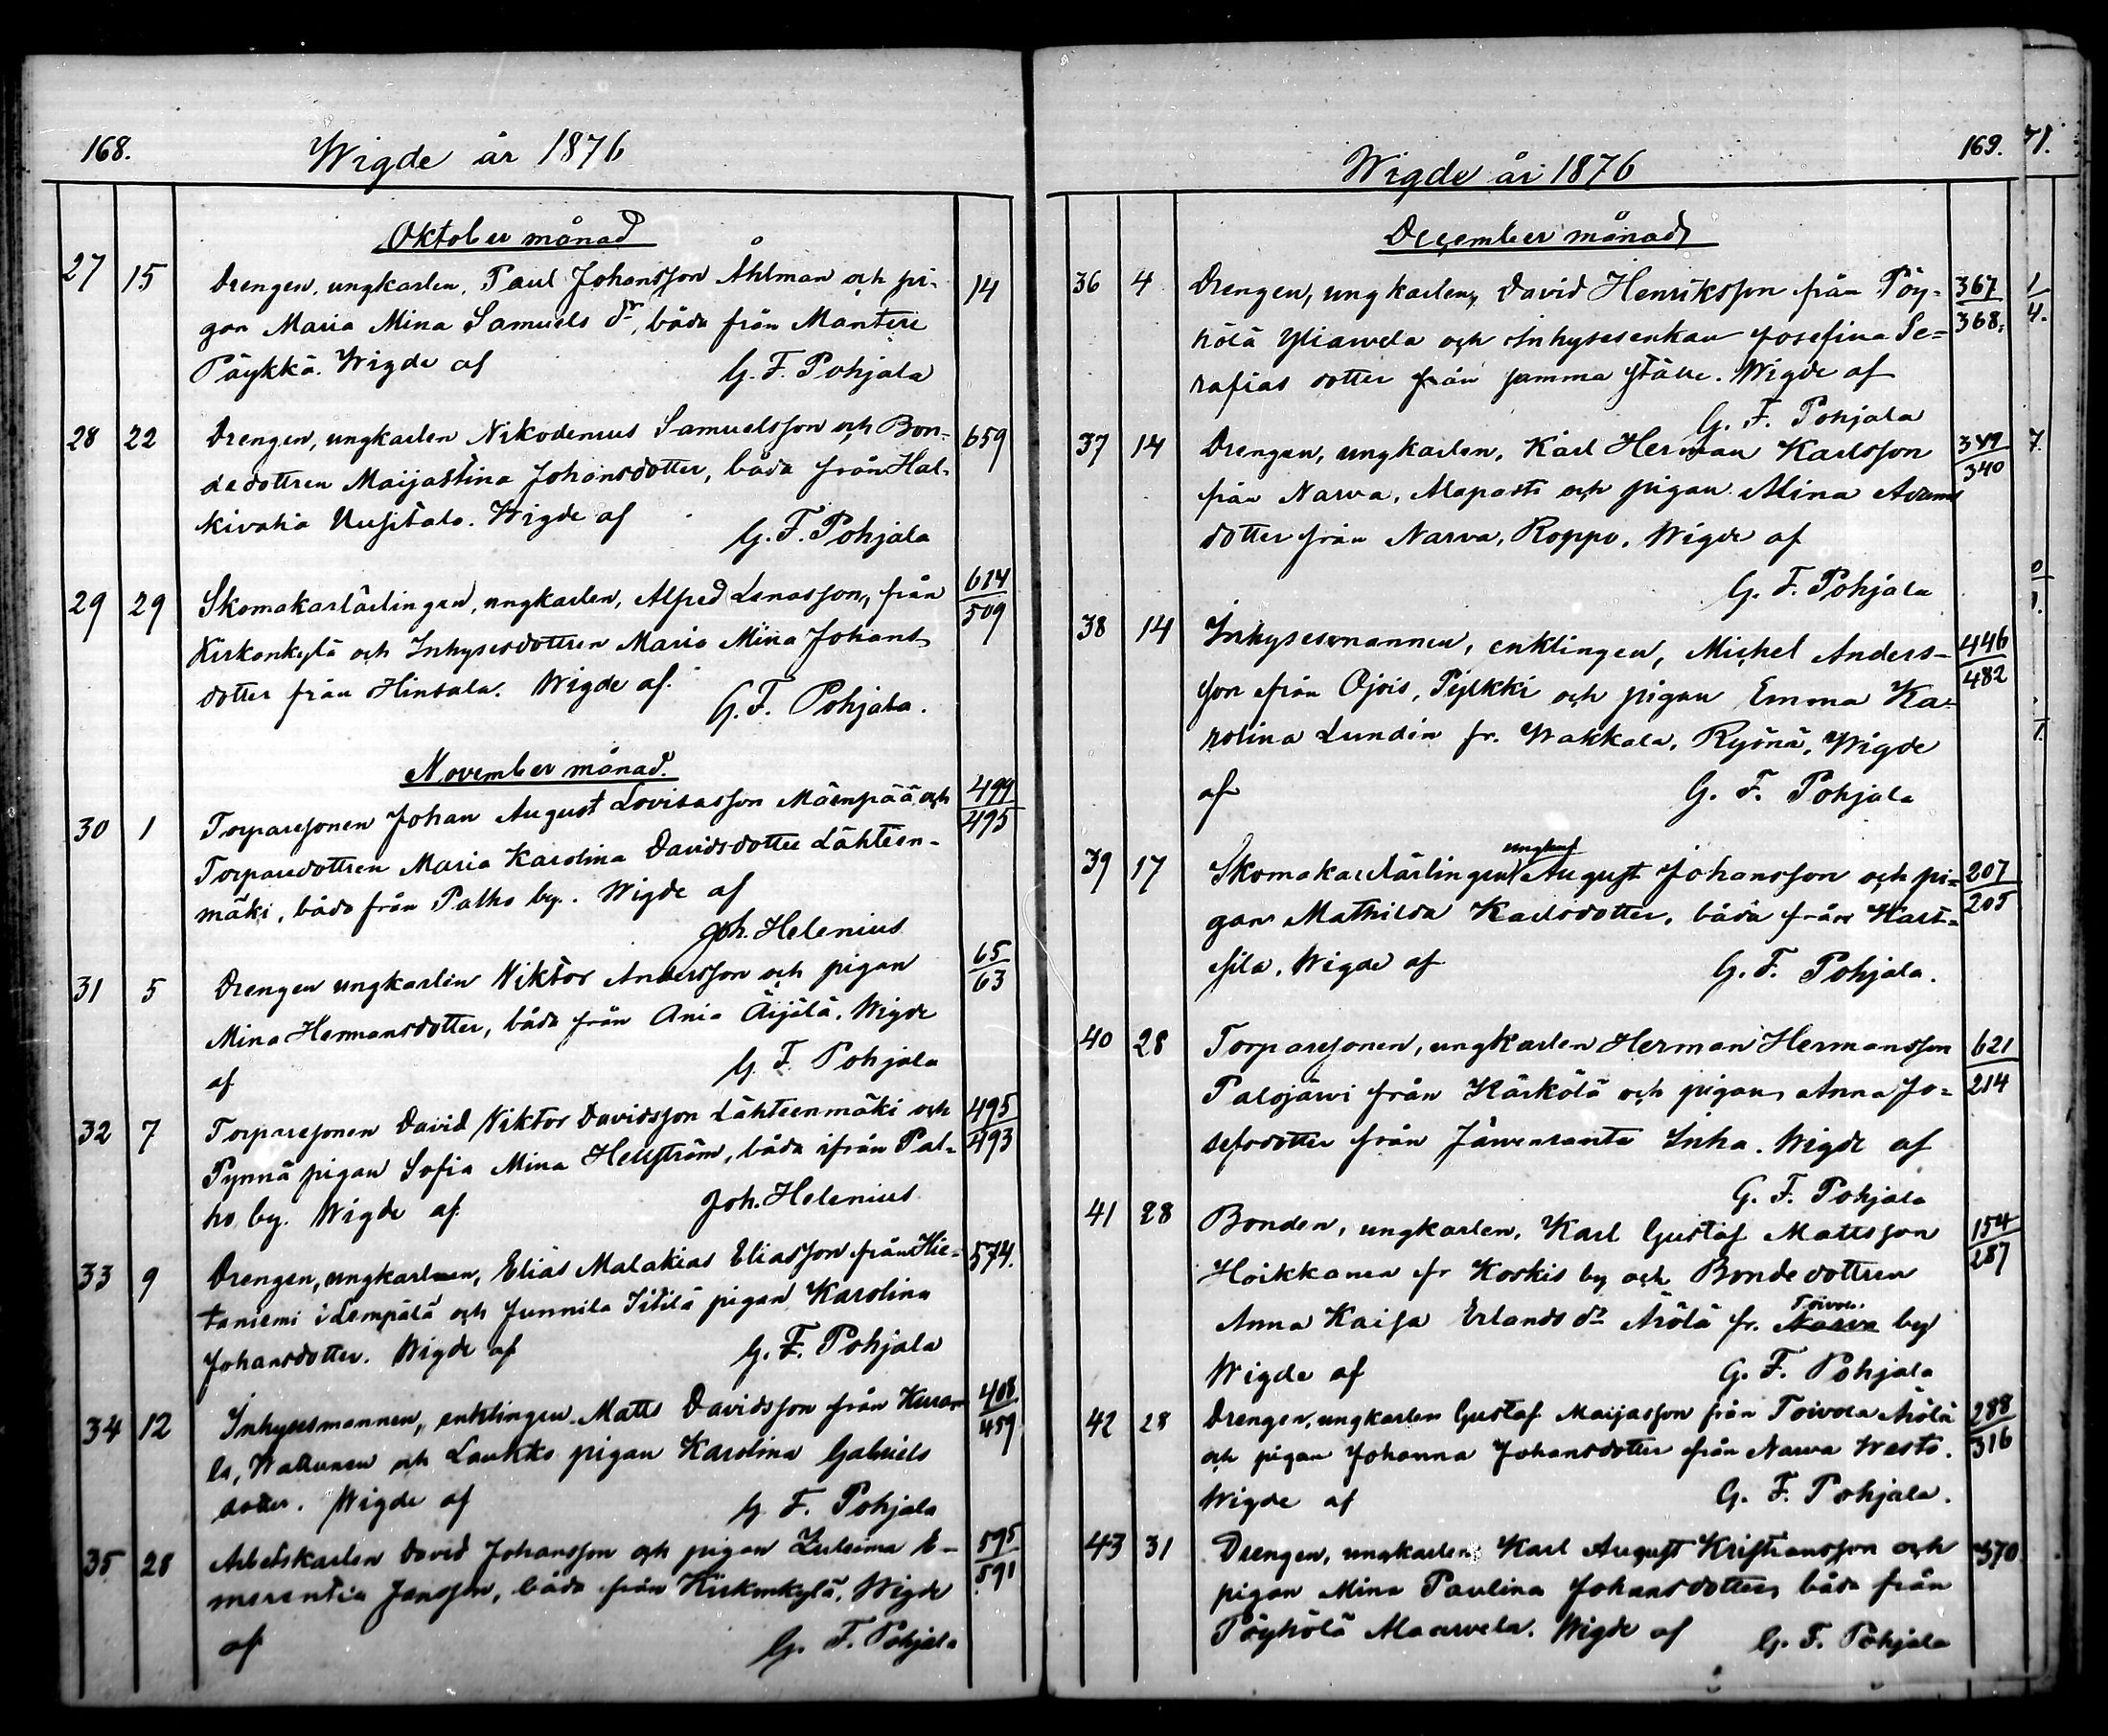 168.
Wigde år 1876
Oktober månad
27 15 Drengen, ungkarlen, Paul Johansson Åhlman och pi- 14
gan Maria Mina Samuels dr, båda från Mantere
Päykkä. Wigde af G. F. Pohjala
28 22 Drengen, ungkarlen Nikodemus Samuelsson och Bon- 659
dedottren Maijastina Johansdotter, båda från Hal-
kivaha Uusitalo. Wigde af
G. F. Pohjala
29 29 Skomakarlärlingen, ungkarlen, Alfred Lenasson, från 614/509
Kirkonkylä och Inhysesdottren Maria Mina Johans
dotter från Hinsala. Wigde af.
G. F. Pohjala.
November månad.
30 1 Torparesonen Johan August Lovisasson Mäenpää och 499/495
Torparedottren Maria Karolina Davidsdotter Lähteen-
mäki, båda från Palho by. Wigde af
Joh. Helenius
31 5 Drengen ungkarlen Wiktor Andersson och pigan 65/63
Mina Hermansdotter, båda från Ania Äijälä. Wigde
af G. F. Pohjala
32 7 Torparesonen David Wiktor Davidsson Lähteenmäki och 495/493
Pynnä pigan Sofia Mina Hellström, båda ifrån Pal-
ho by. Wigde af Joh. Helenius
33 9 Drengen, ungkarlen, Elias Malakias Eliasson från Hie- 574.
taniemi i Lempälä och Junnila Sitilä pigan Karolina
Johansdotter. Wigde af G. F. Pohjala
34 12 Inhysesmannen, enklingen Matts Davidsson från 408/459
la, och Laukko pigan Karolina Gabriels
dotter. Wigde af G. F. Pohjala
35 28 Arbetskarlen David Johansson och pigan Zuleima E- 595/591
merentia Jansson, båda från Kirkonkylä. Wigde
af G. F. Pohjala
169.
Wigde år 1876
December månad
36 4 Drengen, ungkarlen, David Henriksson från Pöy- 367/368.
hölä Yliawela och Inhysesenkan Josefina Se-
rafias dotter från samma ställe. Wigde af
G. F. Pohjala
37 14 Drengen, ungkarlen, Karl Herman Karlsson 349/340
från Narva, Maparti och pigan Mina Adams
dotter från Narva, Roppo. Wigde af
G. F. Pohjala
38 14 Inhysesmannen, enklingen, Michel Anders- 446/482
son från Ojois, Pylkki och pigan Emma Ka-
rolina Lundén fr. Wakkala, Ryönä, Wigde
af G. F. Pohjala
39 17 Skomakarelärlingen ungkarl August Johansson och pi- 207/205
gan Mathilda Karlsdotter, båda från Kart-
sila. Wigde af G. F. Pohjala.
40 28 Torparesonen, ungkarlen Herman Hermansson 621/214
Palojärvi från Kärkölä och pigan Anna Jo-
sefsdotter från Järvenranta Inha. Wigde af
G. F. Pohjala
41 28 Bonden, ungkarlen, Karl Gustaf Mattsson 154/287
Hoikkanen fr Koskis by och Bondedottren
Anna Kaisa Erlands dr Arölä fr. Narva Toivola by
Wigde af G. F. Pohjala
42 28 Drengen, ungkarlen Gustaf Maijasson från Toivola Arölä 288/316
och pigan Johanna Johansdotter från Narva Wasto.
Wigde af G. F. Pohjala.
43 31 Drengen, ungkarlen, Karl August Kristiansson och 370
pigan Mina Paulina Johansdotter, båda från
Pöyhölä Maarvela. Wigde af G. F. Pohjala